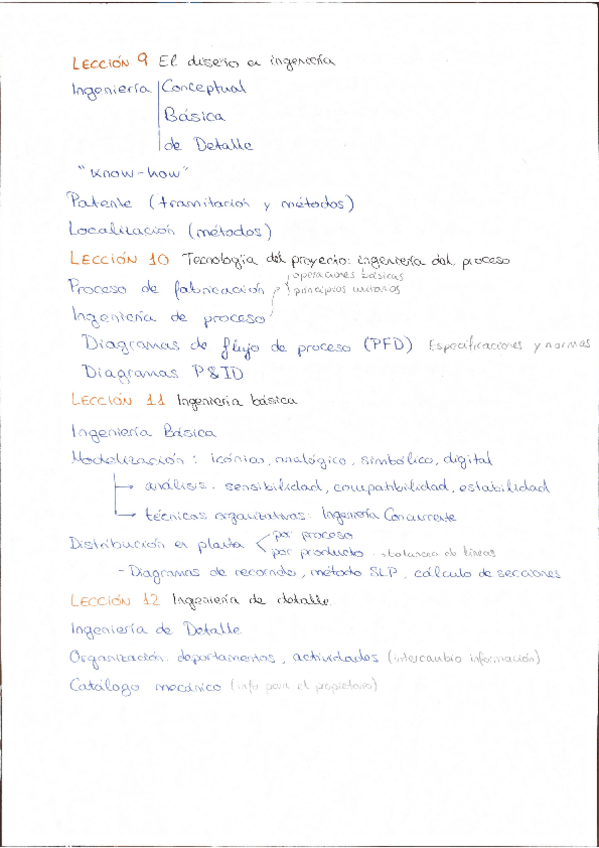 LECCIÓN 9 El diseño en ingeniería
Ingeniería Conceptual
Básica
de Detalle
"know-how"
Patente (tramitación y métodos)
Localización (métodos)
LECCIÓN 10 Tecnología del proyecto: ingeniería del proceso
operaciones básicas
Proceso de fabricación principios unitarios
Ingeniería de proceso
Diagramas de flujo de proceso (PFD) Especificaciones y normas
Diagramas P&ID
LECCIÓN 11 Ingeniería básica
Ingeniería Básica
Modelización: icónico, analógico, simbólico, digital
análisis: sensibilidad, compatibilidad, estabilidad
técnicas organizativas: Ingeniería Concurrente
por proceso
Distribución en planta
por producto balances de líneas
- Diagramas de recorrido, método SLP, cálculo de secciones
LECCIÓN 12 Ingeniería de detalle
Ingeniería de Detalle
Organización: departamentos, actividades (intercambio información)
Catálogo mecánico (info para el propietario)